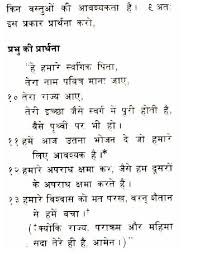 किन वस्तुओं की आवश्यकता है। ६ अतः
इस प्रकार प्रार्थना करो,
प्रभु की प्रार्थना
"हे हमारे स्वर्गिक पिता,
तेरा नाम पवित्र माना जाए,
१० तेरा राज्य आए,
तेरी इच्छा जैसे स्वर्ग में पूरी होती है,
वैसे पृथ्वी पर भी हो।
११ हमें आज उतना भोजन दे जो हमारे
लिए आवश्यक है।*
१२ हमारे अपराध क्षमा कर, जैसे हम दूसरों
के अपराध क्षमा करते हैं।
१३ हमारे विश्वास को मत परख, वरन् शैतान
से हमें बचा।†
("क्योंकि राज्य, पराक्रम और महिमा
सदा तेरे ही हैं, आमेन।)"